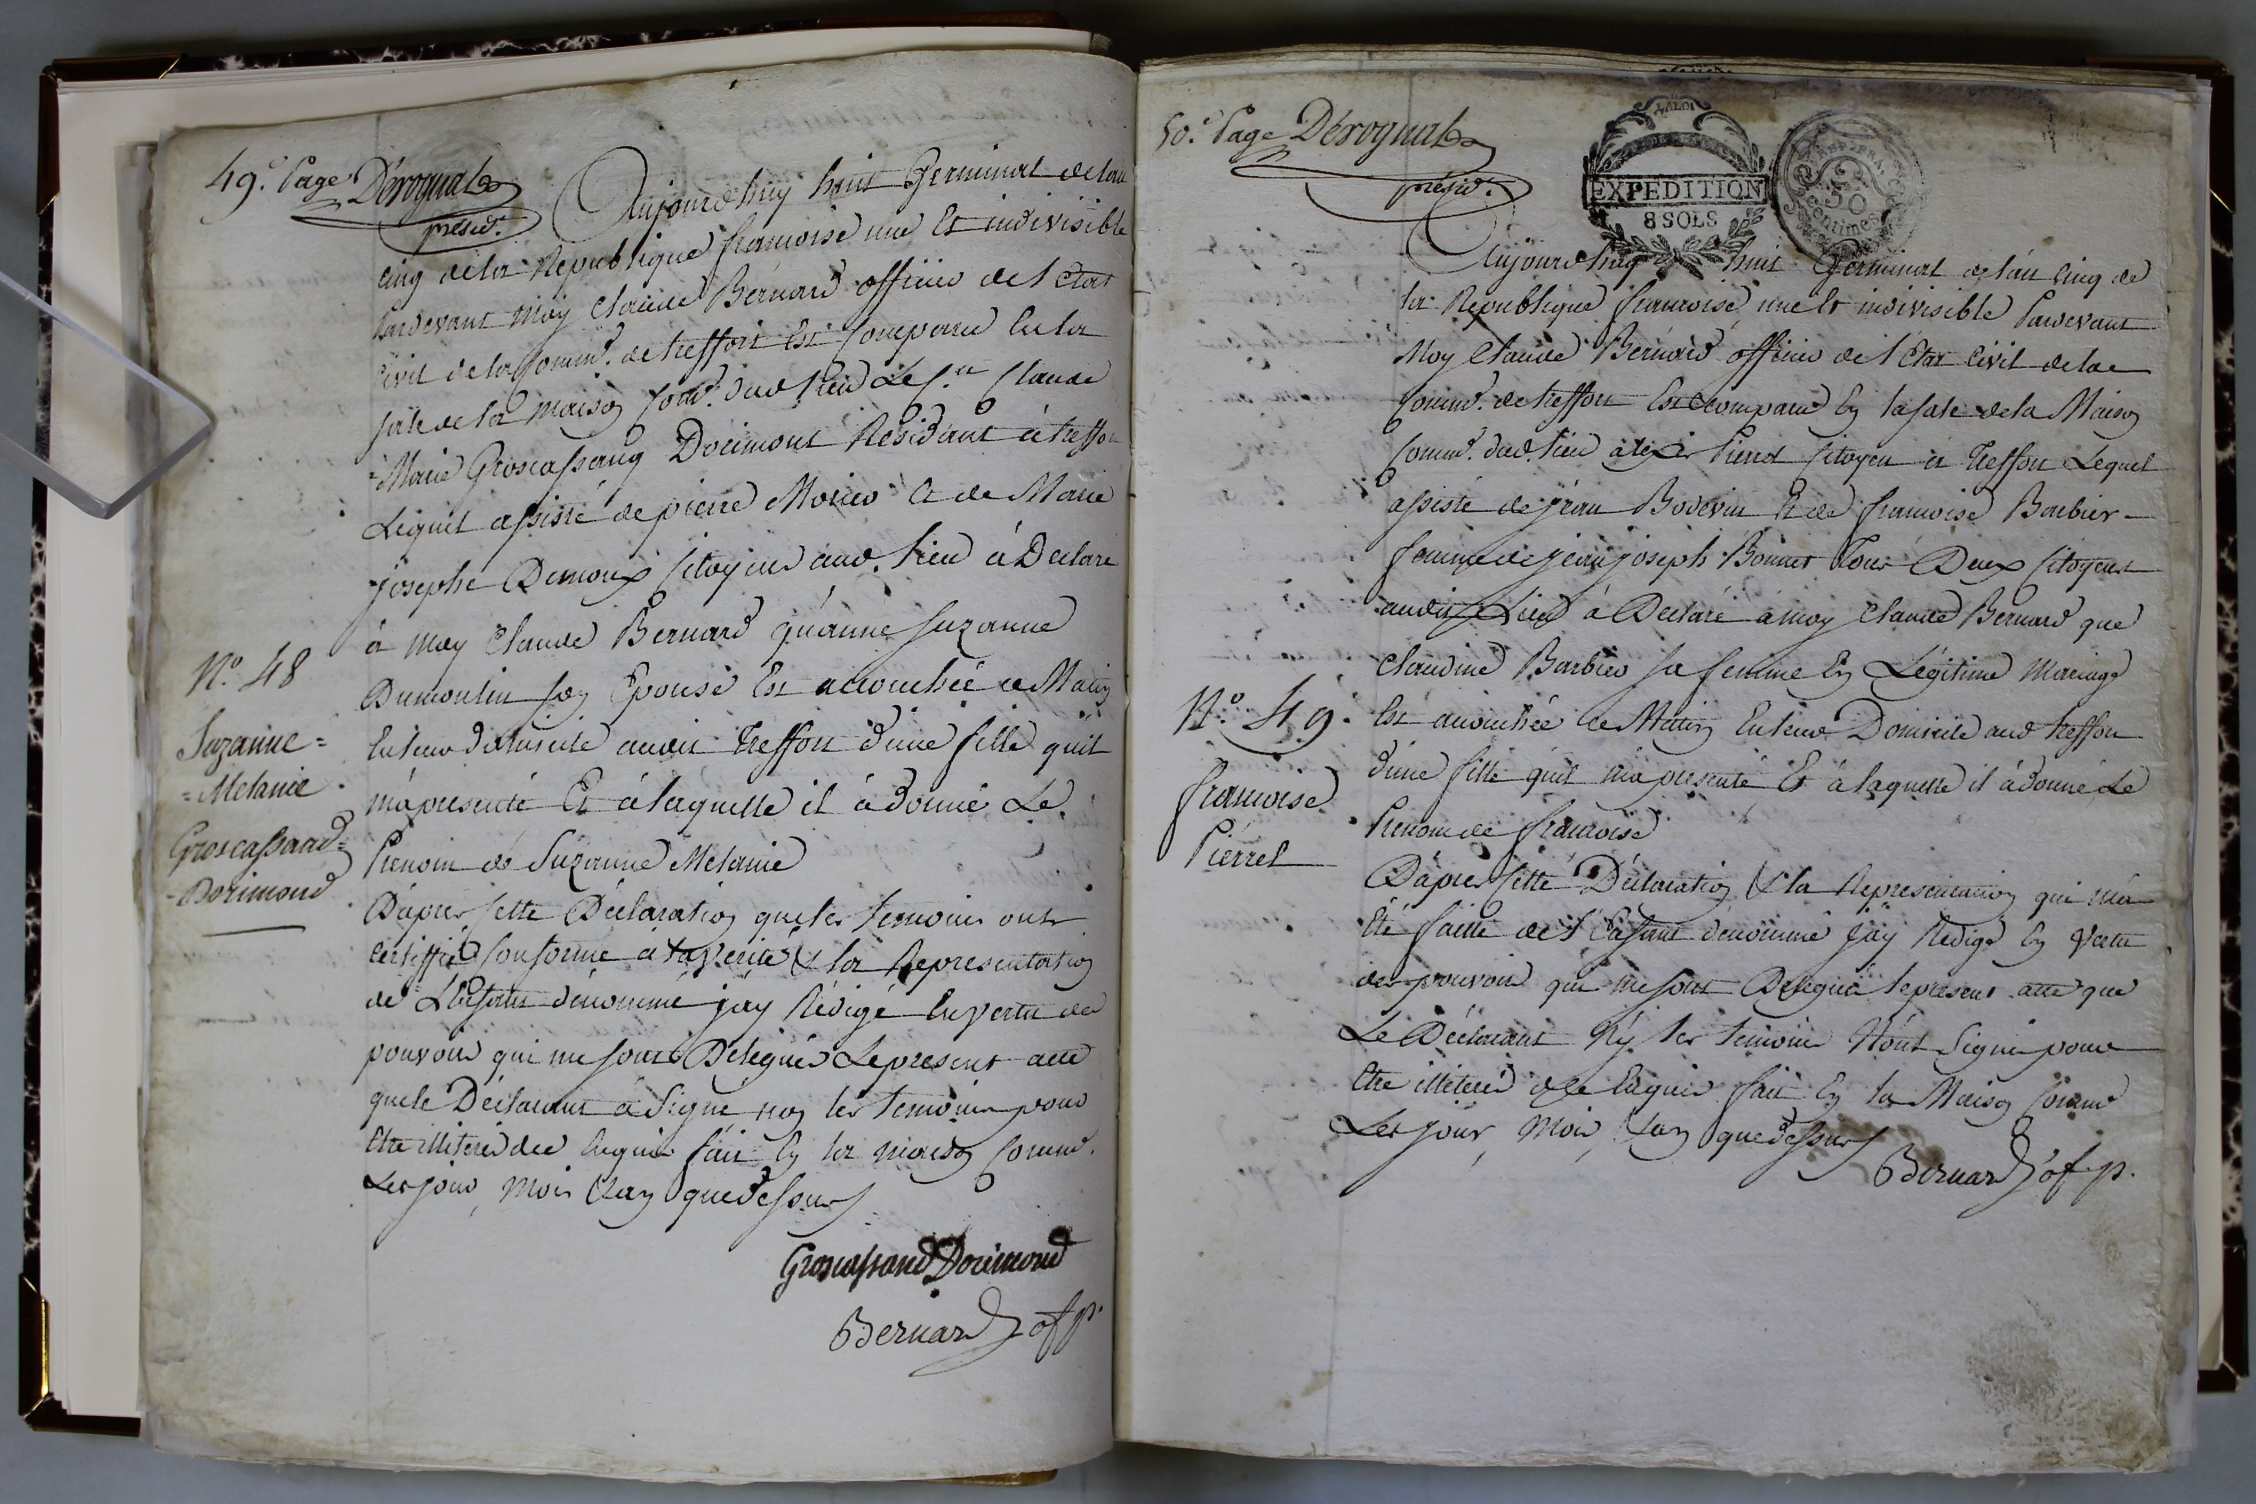 49.e Page Dérognat
présid.t
Aujourdhuy huit Germinal de lan
cinq de la Republique francoise une Et indivisible
Pardevant moy Claude Bernard officier de l'Etat
Civil de la Comm.e de treffort Est Comparu En la
sale de la maison Com.e dud. lieu Le C.en Claude
Marie Groscassand Dorimont Residant à treffort
Lequel assisté de pierre Morico Et de Marie
josephe Demoux Citoyens aud. lieu à Declaré
à moy Claude Bernard qu'anne Suzanne
Dumoulin son Epouse Est accouchée ce Matin
En leur domicile audit Treffort d'une fille quil
m'a presenté Et à laquelle il à donné Le
Prenom de Suzanne Melanie
D'après Cette Déclaration que les temoins ont
certiffié Conforme à la verité & la Representation
de L'Enfant dénommé jay Rédigé En vertu des
pouvoirs qui me sont Délégués Le present acte
que le Déclarant à Signé non les temoins pour
Etre illiterés de ce Enquis fait En la maison Comm.e
Les jour, mois & an que dessus
N.o 48
Suzanne =
= Melanie
Groscassand =
- Dorimond
Groscassand Dorimond
Bernard of. p.
50.e Page Dérognat
présid.t
LA LOI
EXPEDITION
8 SOLS
50
centimes
Aujourdhuy huit Germinal de l'an Cinq de
la Republique francoise une Et indivisible Pardevant
Moy Claude Bernard officier de l'Etat Civil de la
Comm.e de treffort Est Comparu En la sale de la Maison
Comm.e dud. lieu alexis Pierrel Citoyen à Treffort Lequel
assisté de jean Bodevin Et de francoise Barbier
femme de jean joseph Bonnet Tous Deux Citoyens
audit Lieu à Declaré à moy Claude Bernard que
Claudine Barbier sa femme En Légitime Mariage
Est accouchée ce Matin En leur Domicile aud treffort
d'une fille quil m'a presenté Et à laquelle il à donné Le
Prenom de francoise
D'après Cette Déclaration & la Representation qui m'a
Eté faitte de l'Enfant dénommé jay Rédigé En Vertu
des pouvoirs qui me sont Délégué le present acte que
Le Déclarant Ny les temoins N'ont Signé pour
Etre illiterés de ce Enquis fait En la Maison Comm.e
Les jour, Mois, & an que dessus
N.o 49.
francoise
Piérrel
Bernard of. p.